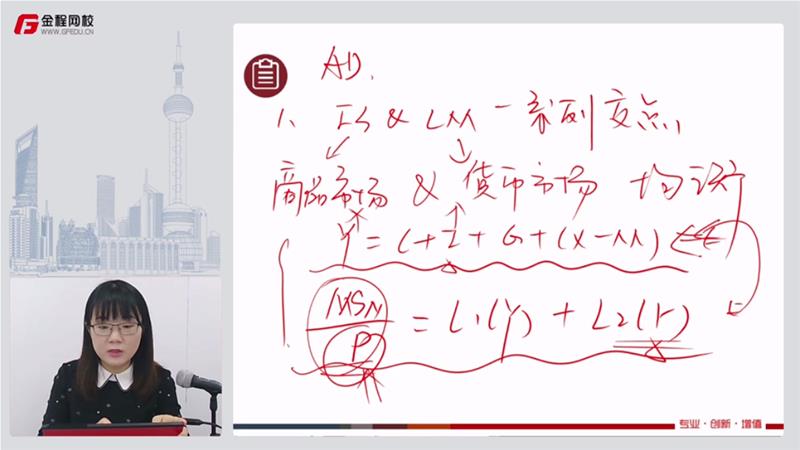 金程网校
WWW.GFEDU.CN
AD.
1、IS & LM 一系列交点,
商品市场 & 货币市场 均衡
Y = C + I + G + (X-M)
MSN/P = L1(Y) + L2(r)
专业·创新·增值